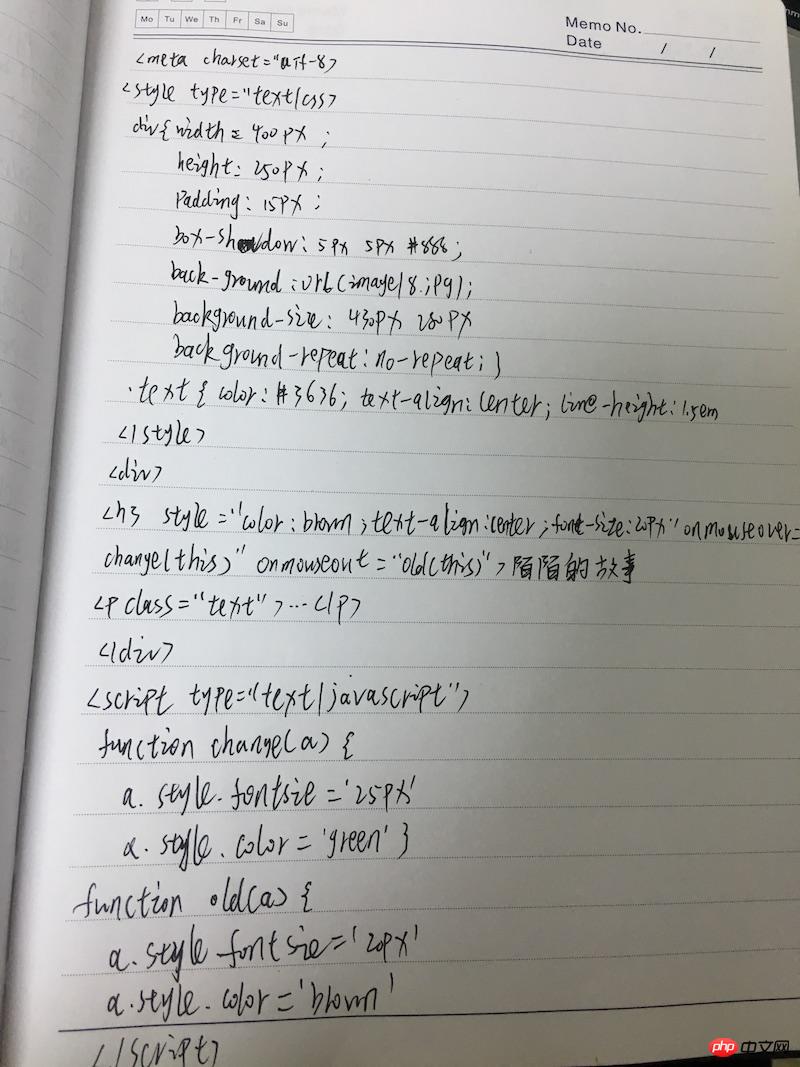 Mo Tu We Th Fr Sa Su
Memo No.
Date / /
<meta charset="utf-8>
<style type="text/css>
div{width= 400px ;
height: 250px ;
padding: 15px ;
box-shadow: 5px 5px #888 ;
back-ground :url(image/8.jpg);
background-size: 430px 280px
background-repeat: no-repeat; }
.text { color: #3636; text-align: center; line-height: 1.5em
</style>
<div>
<h3 style="color: brown ; text-align: center ; font-size: 20px" onmouseover=
change(this)" onmouseout="old(this)">陌陌的故事
<p class="text">...</p>
</div>
<script type="text/javascript">
function change(a) {
a. style. fontsie = '25px'
a. style. color = 'green' }
function old(a) {
a. style fontsize='20px'
a. style. color = 'brown'
</script>
php 中文网